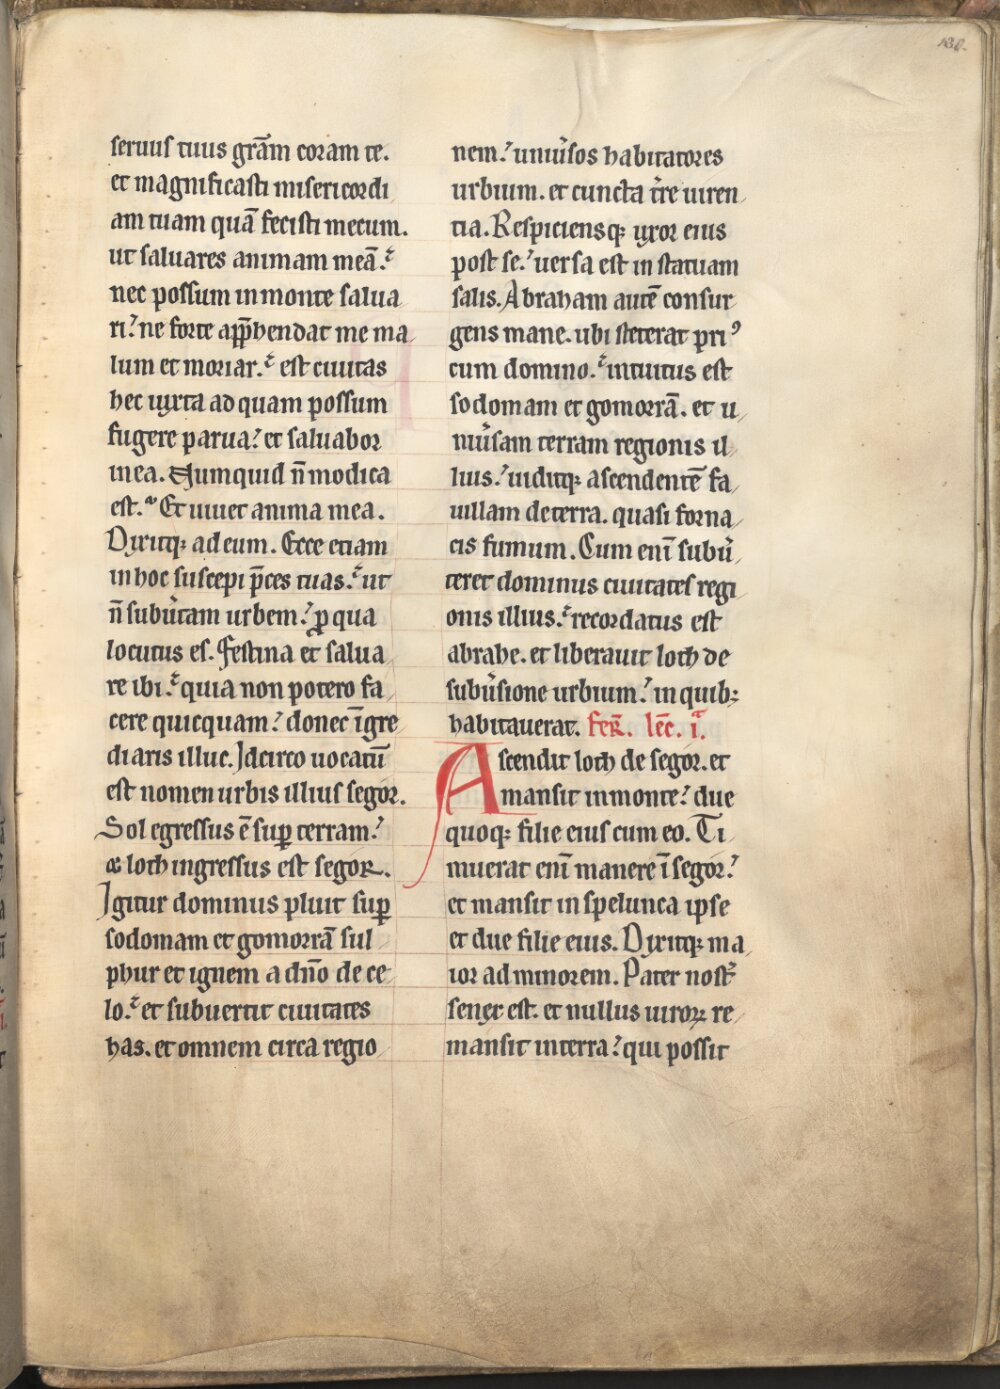 130.
seruus tuus grām coram te.
et magnificasti misericordi
am tuam quā fecisti mecum.
ut saluares animam meā.
nec possum in monte salua
ri. ne forte app̄hendat me ma
lum et moriar. est ciuitas
hec iuxta ad quam possum
fugere parua. et saluabor
in ea. Numquid n̄ modica
est. Et uiuet anima mea.
Dixitq; ad eum. Ecce etiam
in hoc suscepi p̄ces tuas. ut
n̄ subu̓tam urbem. ꝓ qua
locutus es. Festina et salua
re ibi. quia non potero fa
cere quicquam. donec īgre
diaris illuc. Idcirco uocatū
est nomen urbis illius segor.
Sol egressus ē suꝑ terram.
& loth ingressus est segor.
Igitur dominus pluit suꝑ
sodomam et gomorrā sul
phur et ignem a dn̄o de ce
lo. et subuertit ciuitates
has. et omnem circa regio
nem. uniu̓sos habitatores
urbium. et cuncta t̓re uiren
tia. Respiciensq; uxor eius
post se. uersa est in statuam
salis. Abraham autē consur
gens mane. ubi steterat pri᾿
cum domino. intuitus est
sodomam et gomorrā. et u
niu̓sam terram regionis il
lius. uiditq; ascendentē fa
uillam de terra. quasi forna
cis fumum. Cum eni̅ subu̓
teret dominus ciuitates regi
onis illius. recordatus est
abrahe. et liberauit loth de
subu̓sione urbium. in quib;
habitauerat. fer̄. lēc. i.ª
Ascendit loth de segor. et
mansit in monte. due
quoq; filie eius cum eo. Ti
muerat eni̅ manere ī segor.
et mansit in spelunca ipse
et due filie eius. Dixitq; ma
ior ad minorem. Pater nost̓
senex est. et nullus uiroꝝ re
mansit in terra. qui possit